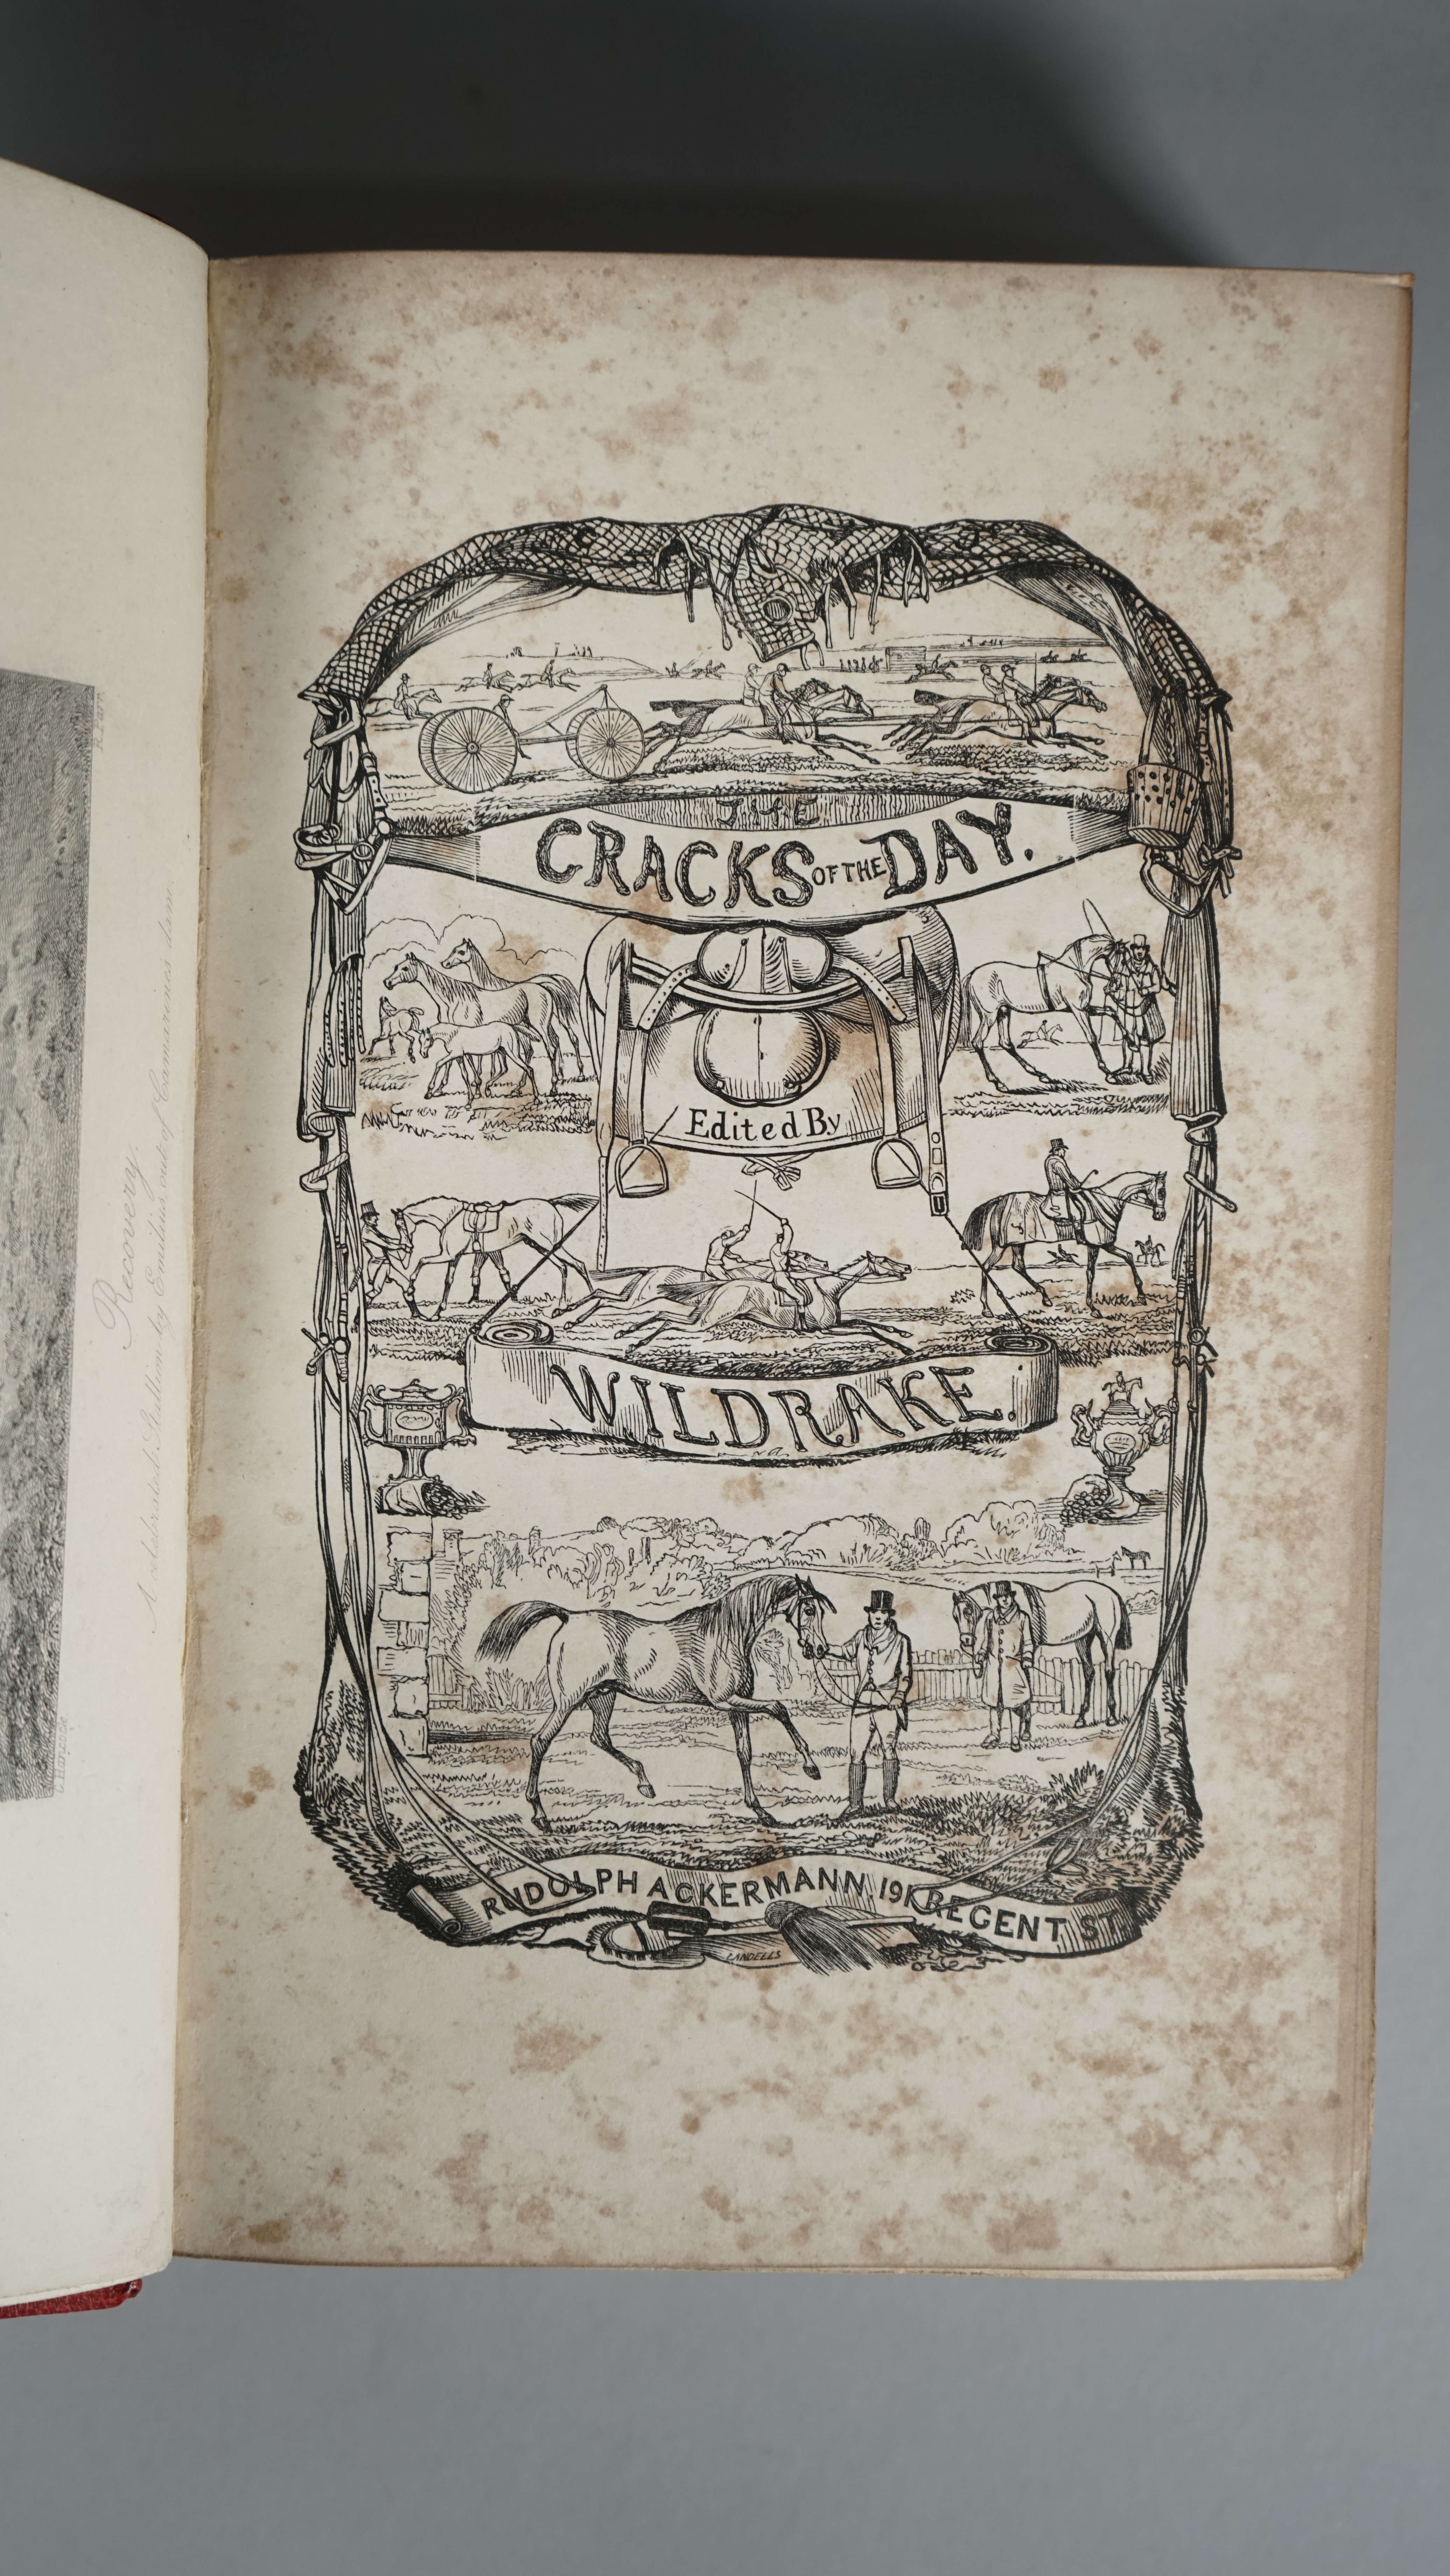 THE
CRACKS OF THE DAY.
Edited By
WILDRAKE.
RUDOLPH ACKERMANN, 191, REGENT ST.
LANDELLS
Recovery.
A celebrated Stallion by Emilius out of Camarine's dam.